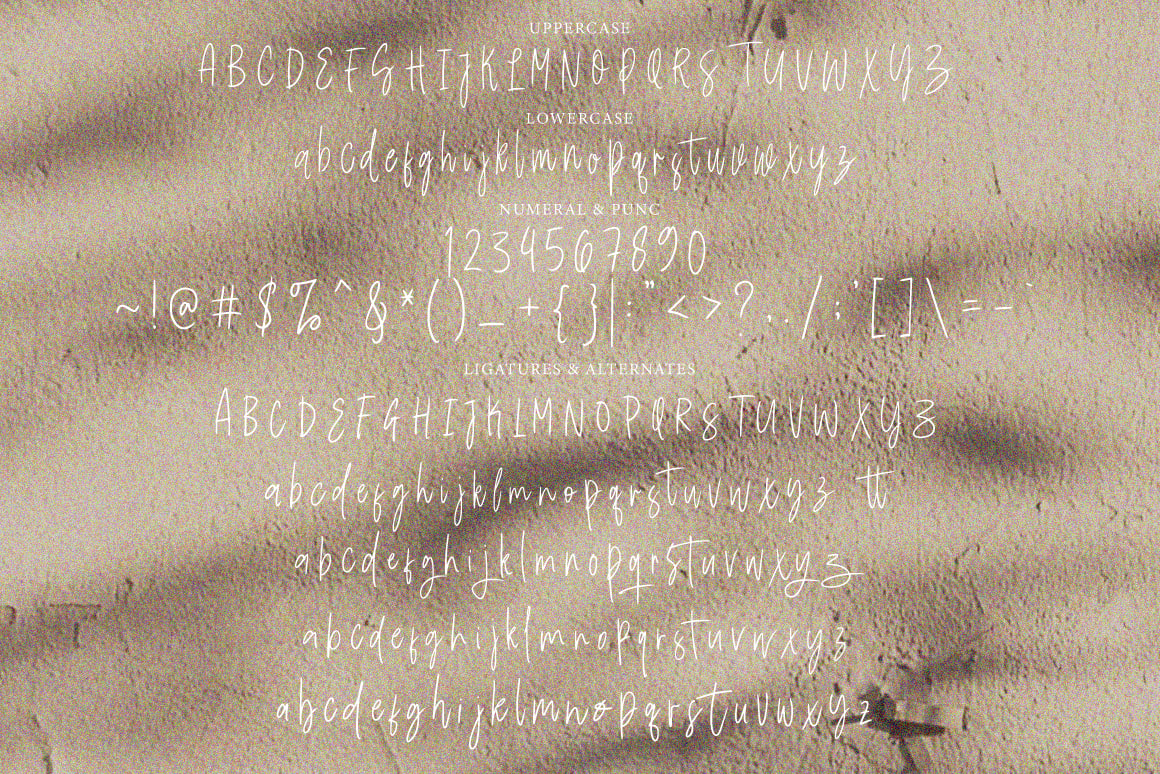 UPPERCASE
ABCDEFGHIJKLMNOPQRSTUVWXYZ
LOWERCASE
abcdefghijklmnopqrstuvwxyz
NUMERAL & PUNC
1234567890
~!@#$%^&*()_+{}|:"<>?,./;'[]\=-`
LIGATURES & ALTERNATES
ABCDEFGHIJKLMNOPQRSTUVWXYZ
abcdefghijklmnopqrstuvwxyz tt
abcdefghijklmnopqrstuvwxyz
abcdefghijklmnopqrstuvwxyz
abcdefghijklmnopqrstuvwxyz